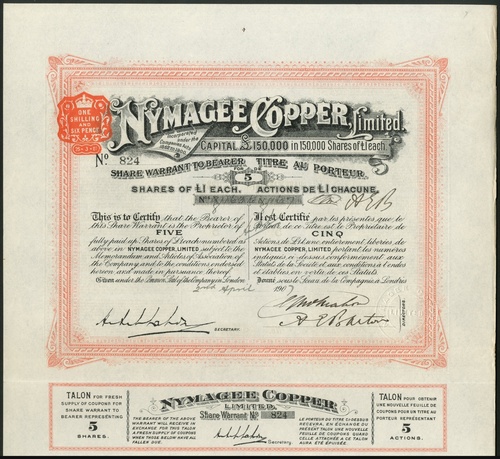 NYMAGEE COPPER, Limited.
Incorporated under the Companies Acts
CAPITAL £150,000 in 150,000 Shares of £1 each.
ONE SHILLING AND SIX PENCE
No. 824
SHARE WARRANT TO BEARER TITRE AU PORTEUR
FOR 5 DE
SHARES OF £1 EACH. ACTIONS DE £1 CHACUNE.
This is to Certify that the Bearer of
this Share Warrant is the Proprietor of
FIVE
fully paid up Shares of £1 each numbered as
above in NYMAGEE COPPER, LIMITED subject to the
Memorandum and Articles of Association of
the Company, and to the conditions endorsed
hereon and made in pursuance thereof
Given under the Common Seal of the Company in London
Il est Certifié par les présentes que le
Porteur de ce titre est le Propriétaire de
CINQ
Actions de £1 chacune entièrement libérées de
NYMAGEE COPPER, LIMITED portant les numéros
indiqués ci-dessus conformément aux
Statuts de la Société et aux conditions à l'endos
et établies en vertu de ces Statuts
Donné sous le Sceau de la Compagnie à Londres
April 1907
SECRETARY.
DIRECTORS.
TALON FOR FRESH
SUPPLY OF COUPONS FOR
SHARE WARRANT TO
BEARER REPRESENTING
5
SHARES.
NYMAGEE COPPER,
LIMITED.
Share Warrant No 824
THE BEARER OF THE ABOVE
WARRANT WILL RECEIVE IN
EXCHANGE FOR THIS TALON
A FRESH SUPPLY OF COUPONS
WHEN THOSE BELOW HAVE ALL
FALLEN DUE.
Secretary.
LE PORTEUR DU TITRE CI-DESSUS
RECEVRA, EN ÉCHANGE DU
PRÉSENT TALON UNE NOUVELLE
FEUILLE DE COUPONS QUAND
CELLE ATTACHÉE A CE TALON
AURA ÉTÉ ÉPUISÉE.
TALON POUR OBTENIR
UNE NOUVELLE FEUILLE DE
COUPONS POUR UN TITRE AU
PORTEUR REPRÉSENTANT
5
ACTIONS.